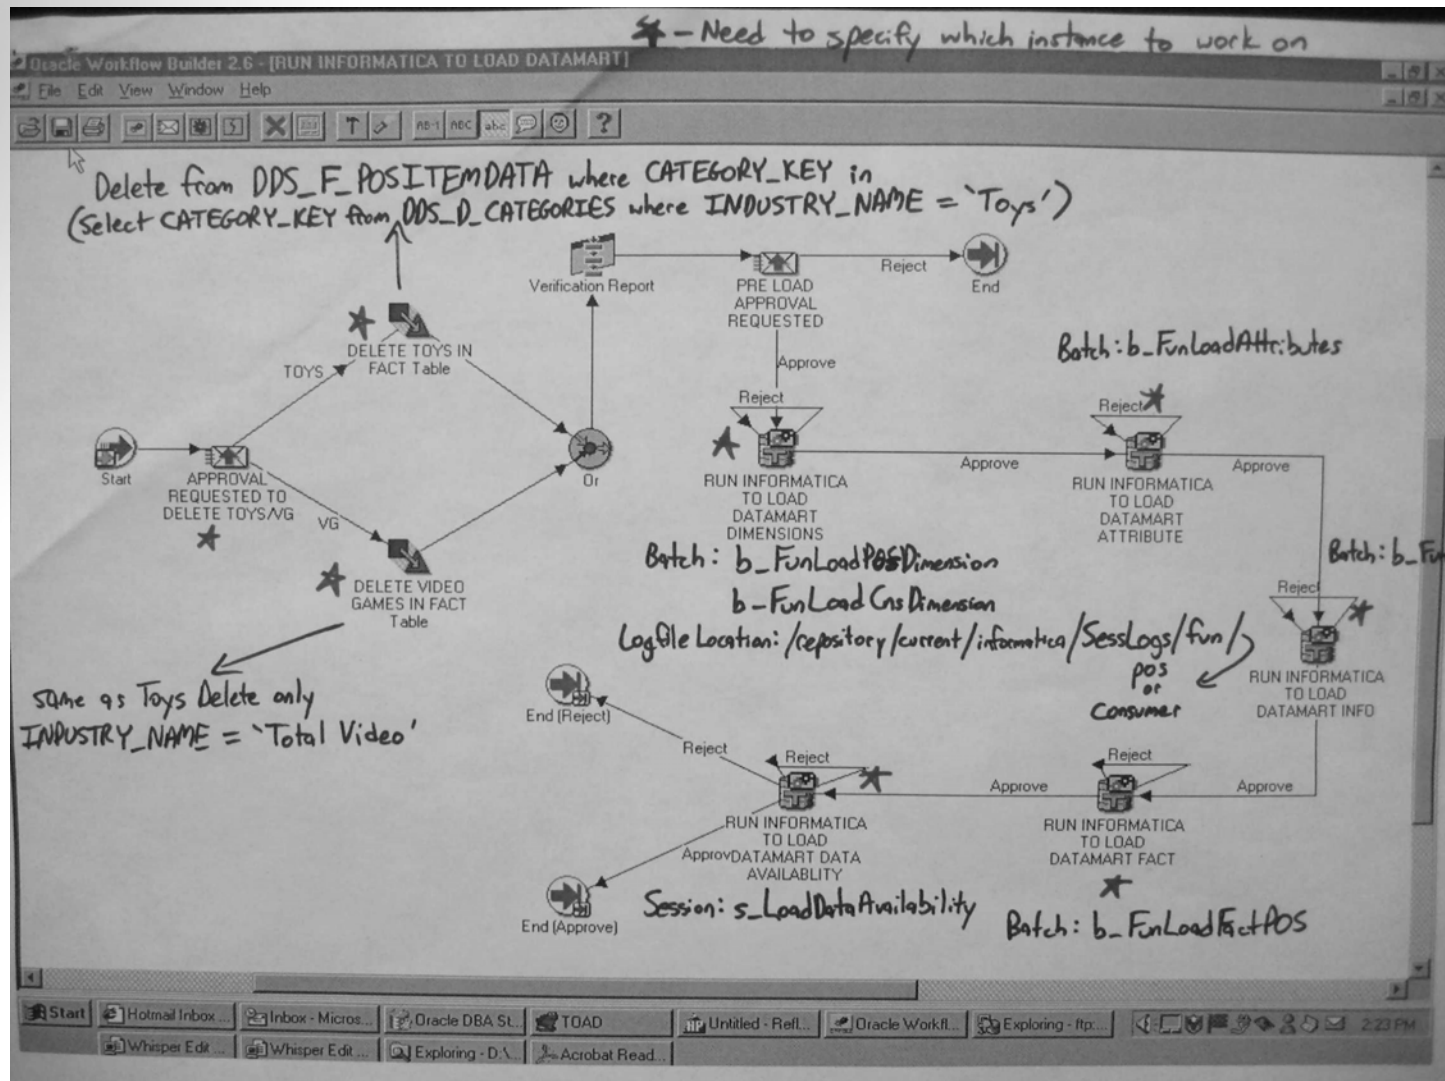 * - Need to specify which instance to work on
Oracle Workflow Builder 2.6 - [RUN INFORMATICA TO LOAD DATAMART]
File Edit View Window Help
Delete from DDS_F_POSITEMDATA where CATEGORY_KEY in
(Select CATEGORY_KEY from DDS_D_CATEGORIES where INDUSTRY_NAME = 'Toys')
Verification Report
PRE LOAD
APPROVAL
REQUESTED
Reject
End
DELETE TOYS IN
FACT Table
TOYS
Approve
Batch: b_FunLoadAttributes
Reject
Reject
Start
APPROVAL
REQUESTED TO
DELETE TOYS/VG
VG
Or
RUN INFORMATICA
TO LOAD
DATAMART
DIMENSIONS
Approve
RUN INFORMATICA
TO LOAD
DATAMART
ATTRIBUTE
Approve
DELETE VIDEO
GAMES IN FACT
Table
Batch: b_FunLoadPOSDimension
b_FunLoadCnsDimension
Logfile Location: /repository/current/informatica/SessLogs/fun/
pos
or
Consumer
Batch: b_Fun
Reject
RUN INFORMATICA
TO LOAD
DATAMART INFO
same as Toys Delete only
INDUSTRY_NAME = 'Total Video'
End (Reject)
Reject
Reject
Approve
Reject
Approve
RUN INFORMATICA
TO LOAD
DATAMART DATA
AVAILABLITY
Approv
RUN INFORMATICA
TO LOAD
DATAMART FACT
End (Approve)
Session: s_LoadDataAvailability
Batch: b_FunLoadFactPOS
Start Hotmail Inbox ... Inbox - Micros... Oracle DBA St... TOAD Untitled - Refl... Oracle Workfl... Exploring - ftp:... 2:23 PM
Whisper Edit ... Whisper Edit ... Exploring - D:\... Acrobat Read...